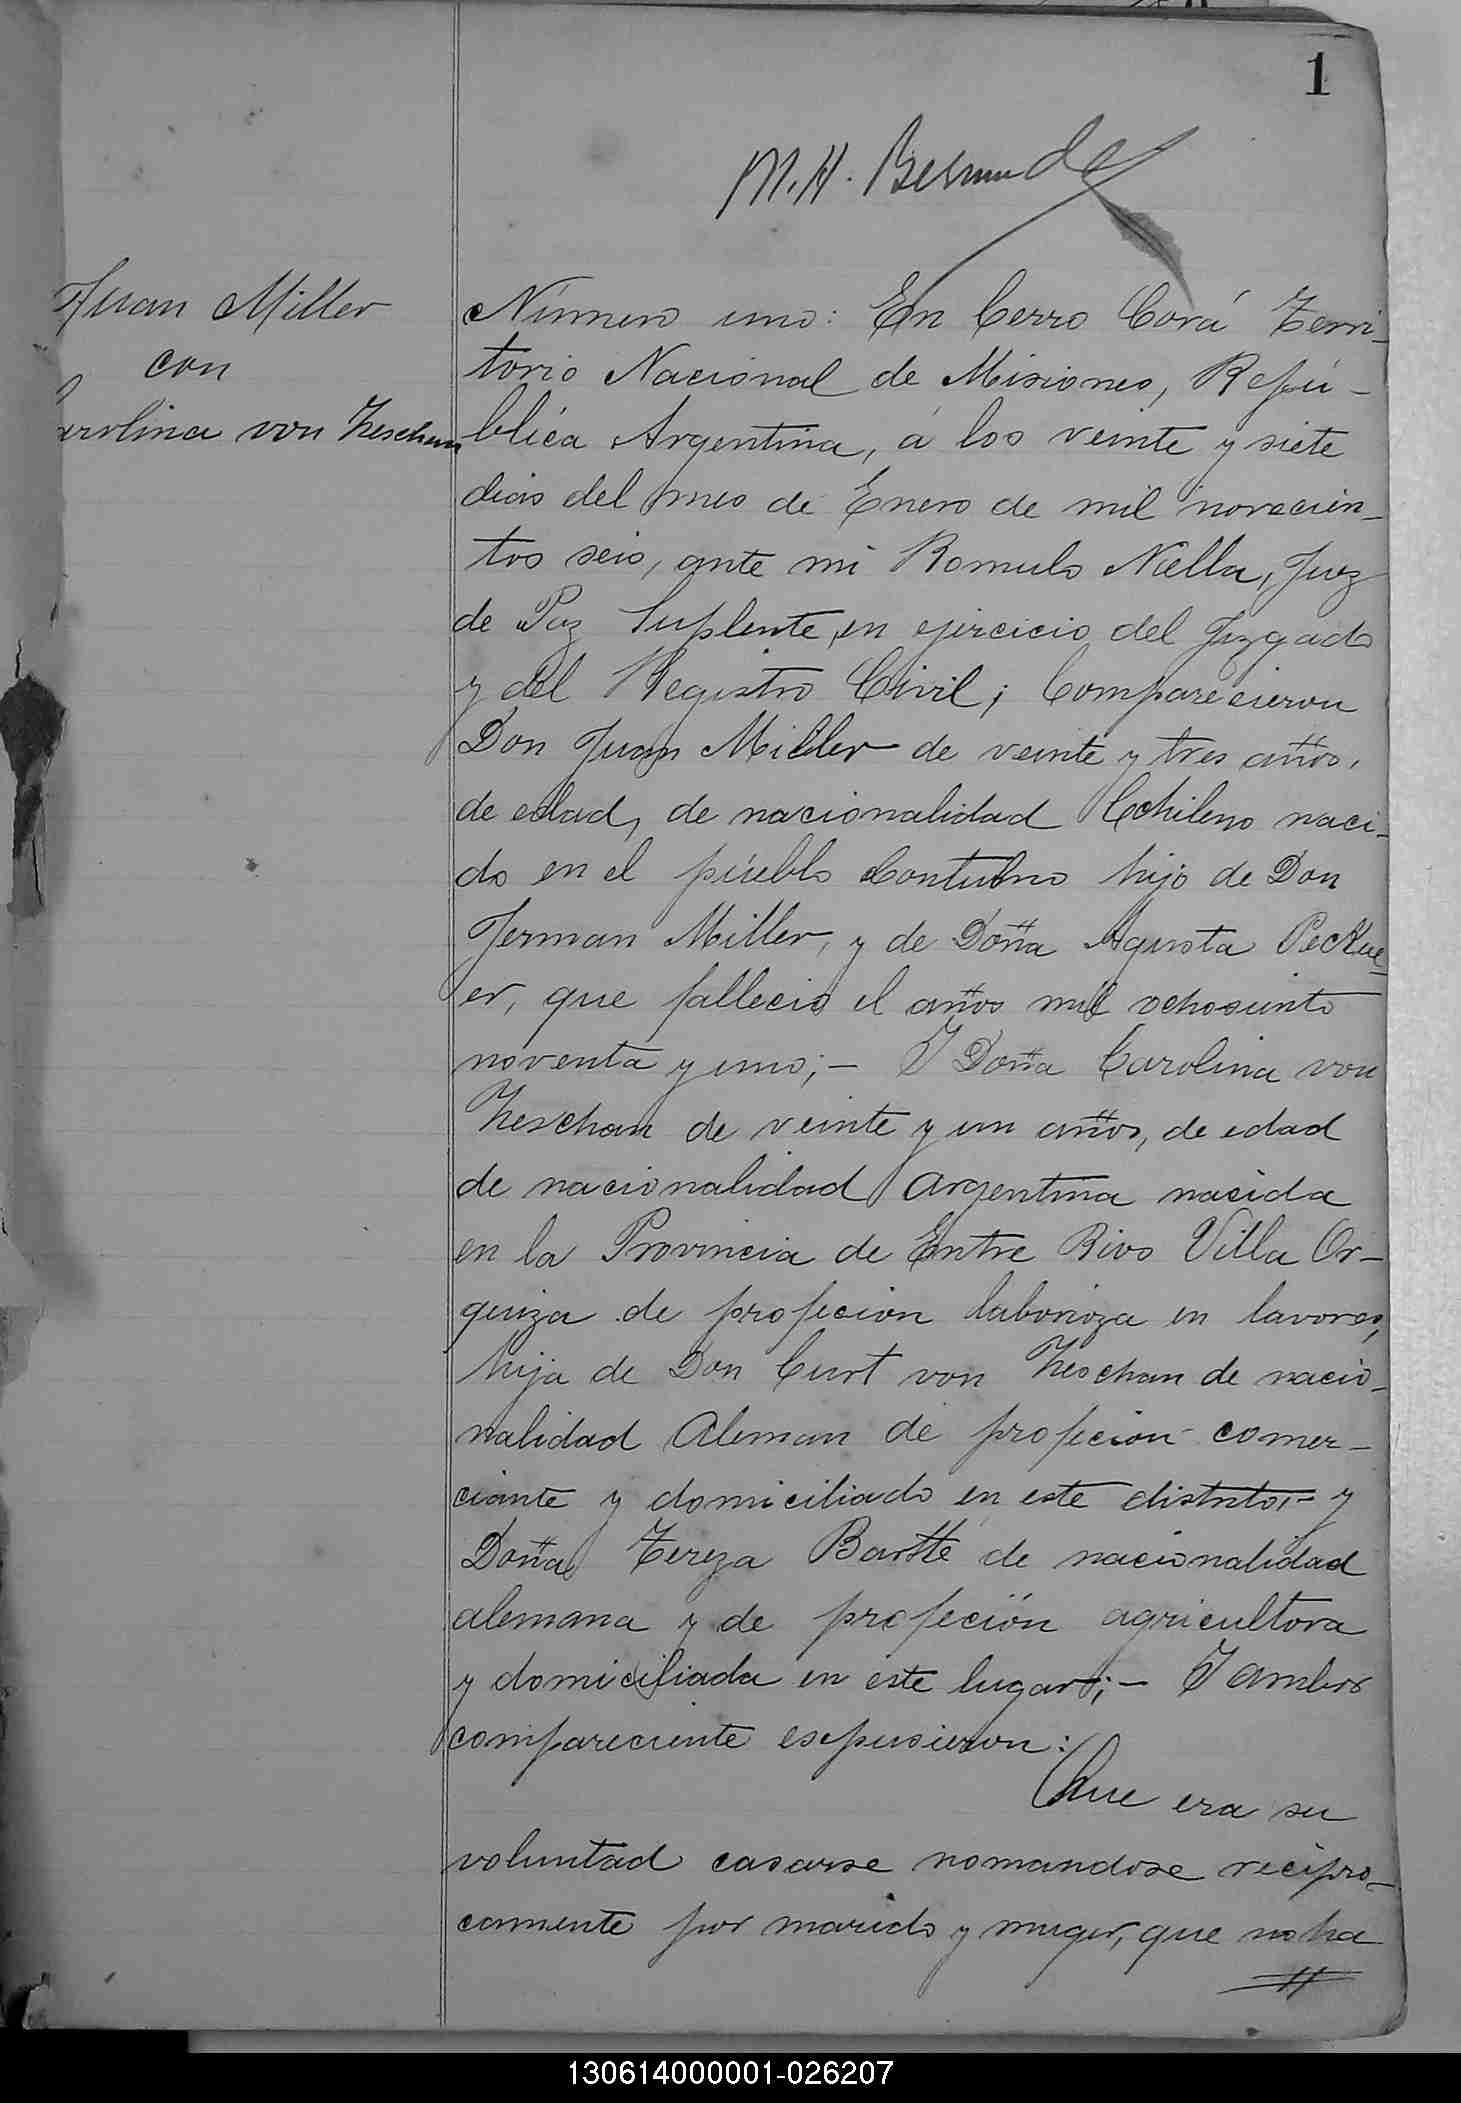 1
M. H. Bermudez
Juan Miller
con
arolina von Zeschau
Número uno: En Cerro Corá Terri-
torio Nacional de Misiones, Repú-
blica Argentina, á los veinte y siete
dias del mes de Enero de mil novecien-
tos seis, ante mi Romulo Nella, Juez
de Paz Suplente, en ejercicio del Juzgado
y del Registro Civil; Comparecieron
Don Juan Miller de veinte y tres años,
de edad, de nacionalidad Chileno naci-
do en el pueblo Contulmo hijo de Don
Jerman Miller, y de Doña Agusta Peckue-
er, que fallecio el años mil ochosiento
noventa y uno;- Y Doña Carolina von
Zeschau de veinte y un años, de edad
de nacionalidad Argentina nasida
en la Provincia de Entre Rios Villa Or-
quiza de profecion laborioza en lavores,
hija de Don Curt von Zeschau de nacio-
nalidad Aleman de profecion comer-
ciante y domiciliado en este distrito,- y
Doña Tereza Bartte de nacionalidad
alemana y de profeción agricultora
y domiciliada en este lugar;- Y ambos
compareciente espusieron:
Que era su
voluntad casarse nomandose recipro-
camente por marido y muger, que no ha
130614000001-026207